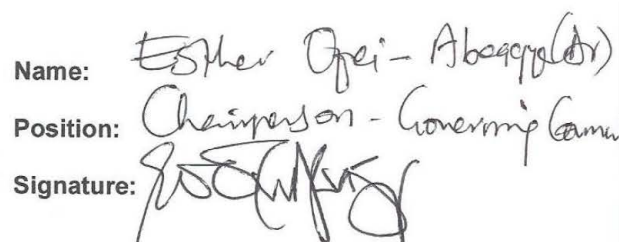 Name: Esther Ofei-Aboagye (Dr)
Position: Chairperson - Governing
Signature: